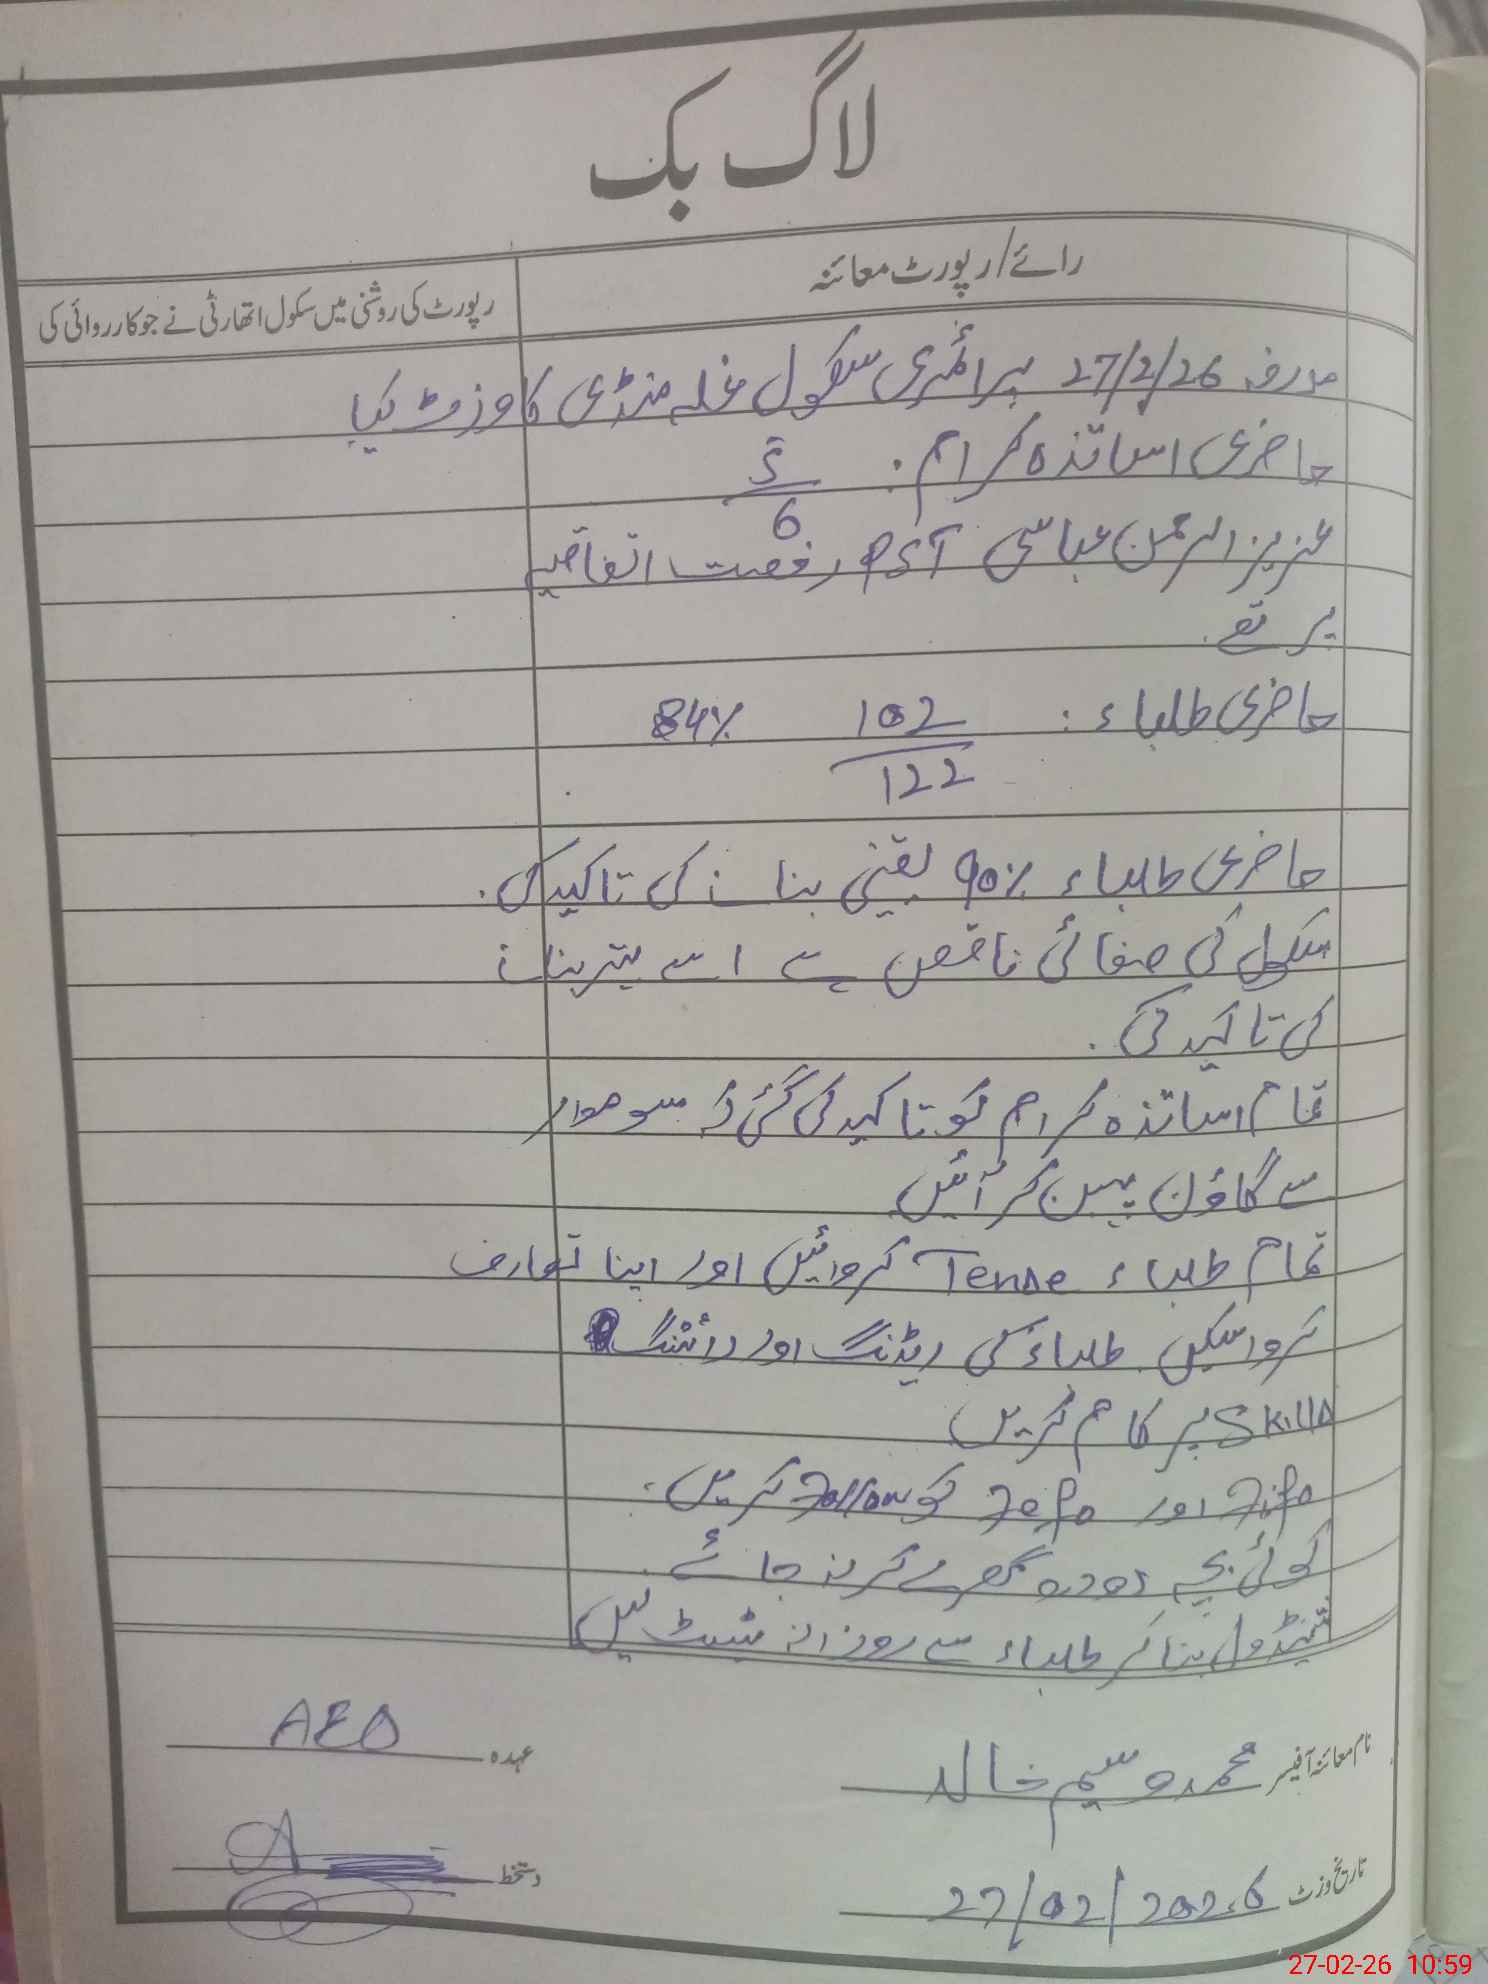 لاگ بک
رائے/رپورٹ معائنہ
رپورٹ کی روشنی میں سکول اتھارٹی نے جو کارروائی کی
مورخہ 27/2/26 پرائمری سکول غلہ منڈی کا وزٹ کیا
حاضری اساتذہ کرام: 5/6
عزیز الرحمن عباسی رخصت اتفاقیہ
پر تھے۔
حاضری طلباء : 102/122 84%
حاضری طلباء 90% یقینی بنانے کی تاکید کی۔
سکول کی صفائی ناقص ہے اسے بہتر بنانے
کی تاکید کی۔
تمام اساتذہ کرام کو تاکید کی گئی کہ سوموار
سے گاؤن پہن کر آئیں
تمام طلباء Tense کروائیں اور اپنا تعارف
کروا سکیں۔ طلباء کی ریڈنگ اور رائٹنگ
Skills پر کام کریں
Fifo اور Fefo کو Follow کریں۔
کوئی بچہ گھر لے کر نہ جائے۔
شیڈول بنا کر طلباء سے روزانہ ٹیسٹ لیں
نام معائنہ آفیسر محمد وسیم خالد
عہدہ AEO
تاریخ وزٹ 27/02/2026
دستخط
27-02-26 10:59